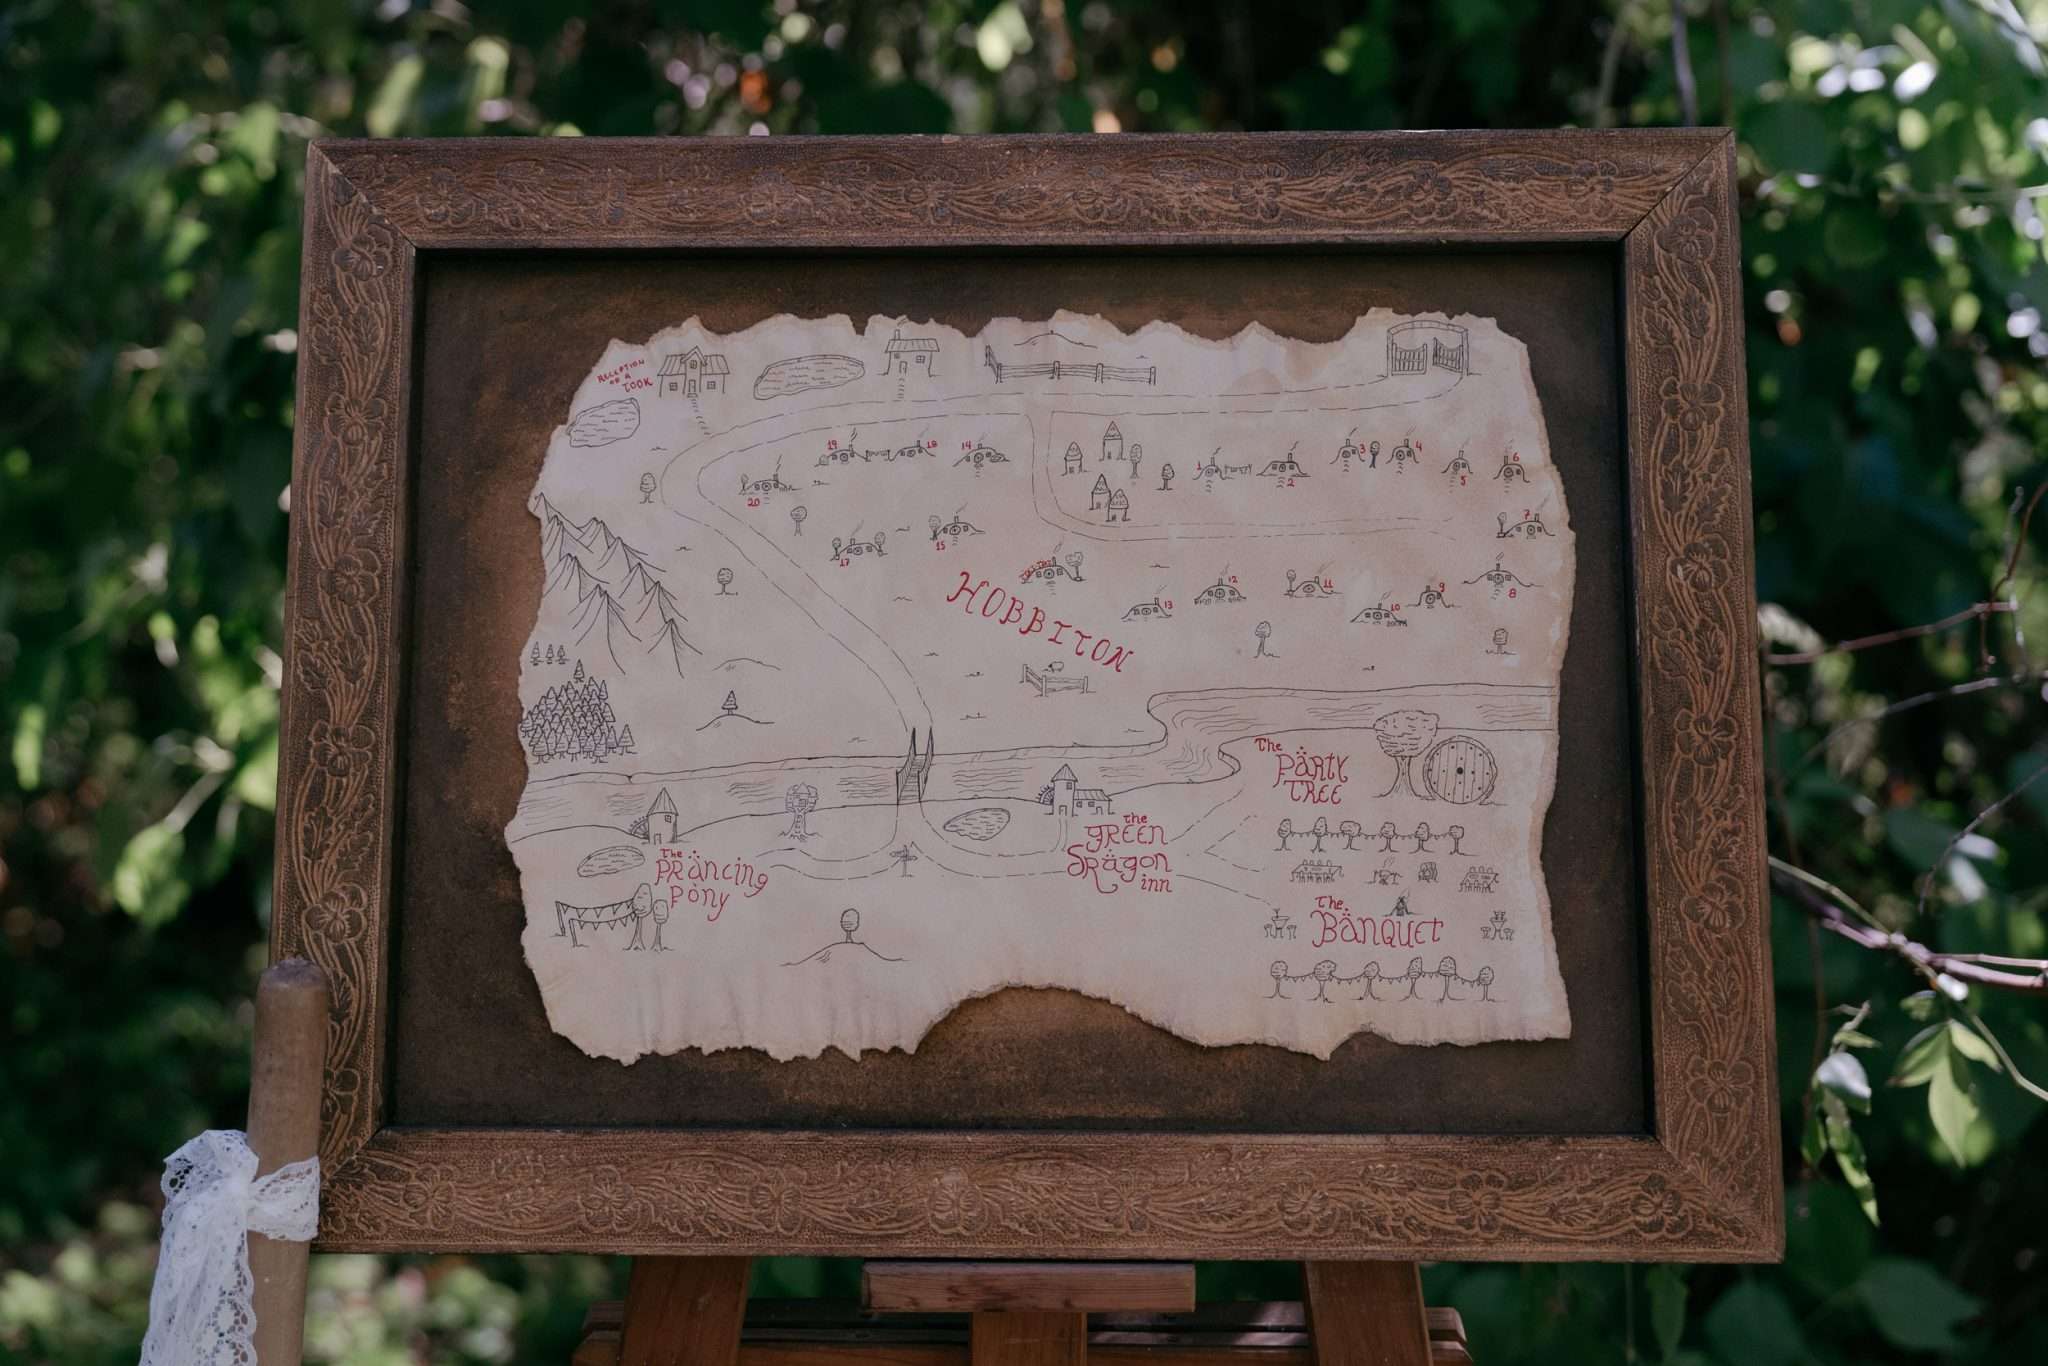 RECEPTION
OF A
TOOK
19
18
14
1
2
3
4
5
6
20
17
15
7
HOBBITON
13
12
11
10
9
8
The
PÄRTY
TREE
The
PRÄNCING
PÖNY
The
GREEN
DRÄGON
inn
The
BÄNQUET